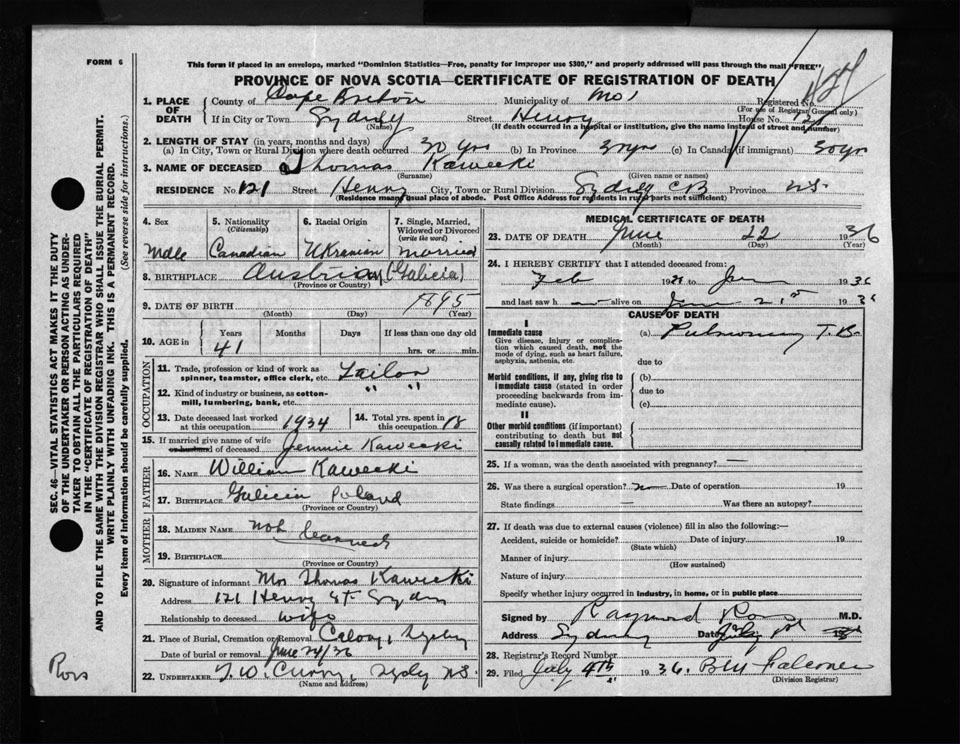 FORM 6
This form if placed in an envelope, marked "Dominion Statistics—Free, penalty for improper use $300," and properly addressed will pass through the mail "FREE"
PROVINCE OF NOVA SCOTIA—CERTIFICATE OF REGISTRATION OF DEATH
1. PLACE OF DEATH { County of Cape Breton Municipality of Registered No.
(For use of Registrar General only)
If in City or Town Sydney Street Henry House No. 121
(Name) (If death occurred in a hospital or institution, give the name instead of street and number)
2. LENGTH OF STAY (in years, months and days)
(a) In City, Town or Rural Division where death occurred 30 yrs (b) In Province 30 yrs (c) In Canada (if immigrant) 30 yr
3. NAME OF DECEASED Thomas Kawecki
(Surname) (Given name or names)
RESIDENCE No. 121 Street Henry City, Town or Rural Division Sydney CB Province NS.
(Residence means usual place of abode. Post Office Address for residents in rural parts not sufficient)
4. Sex
Male
5. Nationality
(Citizenship)
Canadian
6. Racial Origin
Ukranian
7. Single, Married, Widowed or Divorced
(write the word)
Married
8. BIRTHPLACE Austria (Galicia)
(Province or Country)
9. DATE OF BIRTH 1895
(Month) (Day) (Year)
10. AGE in { Years Months Days If less than one day old
41 hrs. or min.
OCCUPATION
11. Trade, profession or kind of work as
spinner, teamster, office clerk, etc. Tailor
12. Kind of industry or business, as cotton-
mill, lumbering, bank, etc. " "
13. Date deceased last worked
at this occupation 1934
14. Total yrs. spent in
this occupation 18
15. If married give name of wife
or husband of deceased Jennie Kawecki
FATHER
16. NAME William Kawecki
17. BIRTHPLACE Galicia Poland
(Province or Country)
MOTHER
18. MAIDEN NAME not learned
19. BIRTHPLACE
(Province or Country)
20. Signature of informant Mrs Thomas Kawecki
Address 121 Henry St. Sydney
Relationship to deceased wife
21. Place of Burial, Cremation or Removal Calvary, Sydney
Date of burial or removal June 24/36
22. UNDERTAKER T. W. Curry, Sydney N.S.
(Name and Address)
MEDICAL CERTIFICATE OF DEATH
23. DATE OF DEATH June 22 1936
(Month) (Day) (Year)
24. I HEREBY CERTIFY that I attended deceased from:
Feb 19 to 1936
and last saw h alive on June 21st 1936
CAUSE OF DEATH
I
Immediate cause (a) Pulmonary T.B.
Give disease, injury or complica-
tion which caused death, not the
mode of dying, such as heart failure,
asphyxia, asthenia, etc.
due to
Morbid conditions, if any, giving rise to
immediate cause (stated in order
proceeding backwards from im-
mediate cause).
(b)
due to
(c)
II
Other morbid conditions (if important)
contributing to death but not
causally related to immediate cause.
25. If a woman, was the death associated with pregnancy? —
26. Was there a surgical operation? no Date of operation 19
State findings — Was there an autopsy?
27. If death was due to external causes (violence) fill in also the following:—
Accident, suicide or homicide? Date of injury 19
(State which)
Manner of injury
(How sustained)
Nature of injury
Specify whether injury occurred in industry, in home, or in public place
Signed by Raymond Ross M.D.
Address Sydney Date July 1st 19
28. Registrar's Record Number
29. Filed July 4th 1936. Falconer
(Division Registrar)
Ross
SEC. 46—VITAL STATISTICS ACT MAKES IT THE DUTY
OF THE UNDERTAKER OR PERSON ACTING AS UNDER-
TAKER TO OBTAIN ALL THE PARTICULARS REQUIRED
IN THE "CERTIFICATE OF REGISTRATION OF DEATH"
AND TO FILE THE SAME WITH THE DIVISION REGISTRAR WHO SHALL ISSUE THE BURIAL PERMIT.
WRITE PLAINLY WITH UNFADING INK. THIS IS A PERMANENT RECORD.
Every item of information should be carefully supplied. (See reverse side for instructions.)